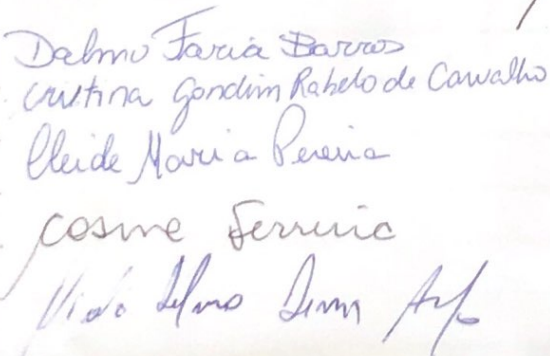 Dalmo Faria Barros
Cristina Gondim Rabelo de Carvalho
Cleide Maria Pereira
Cosme Ferreira